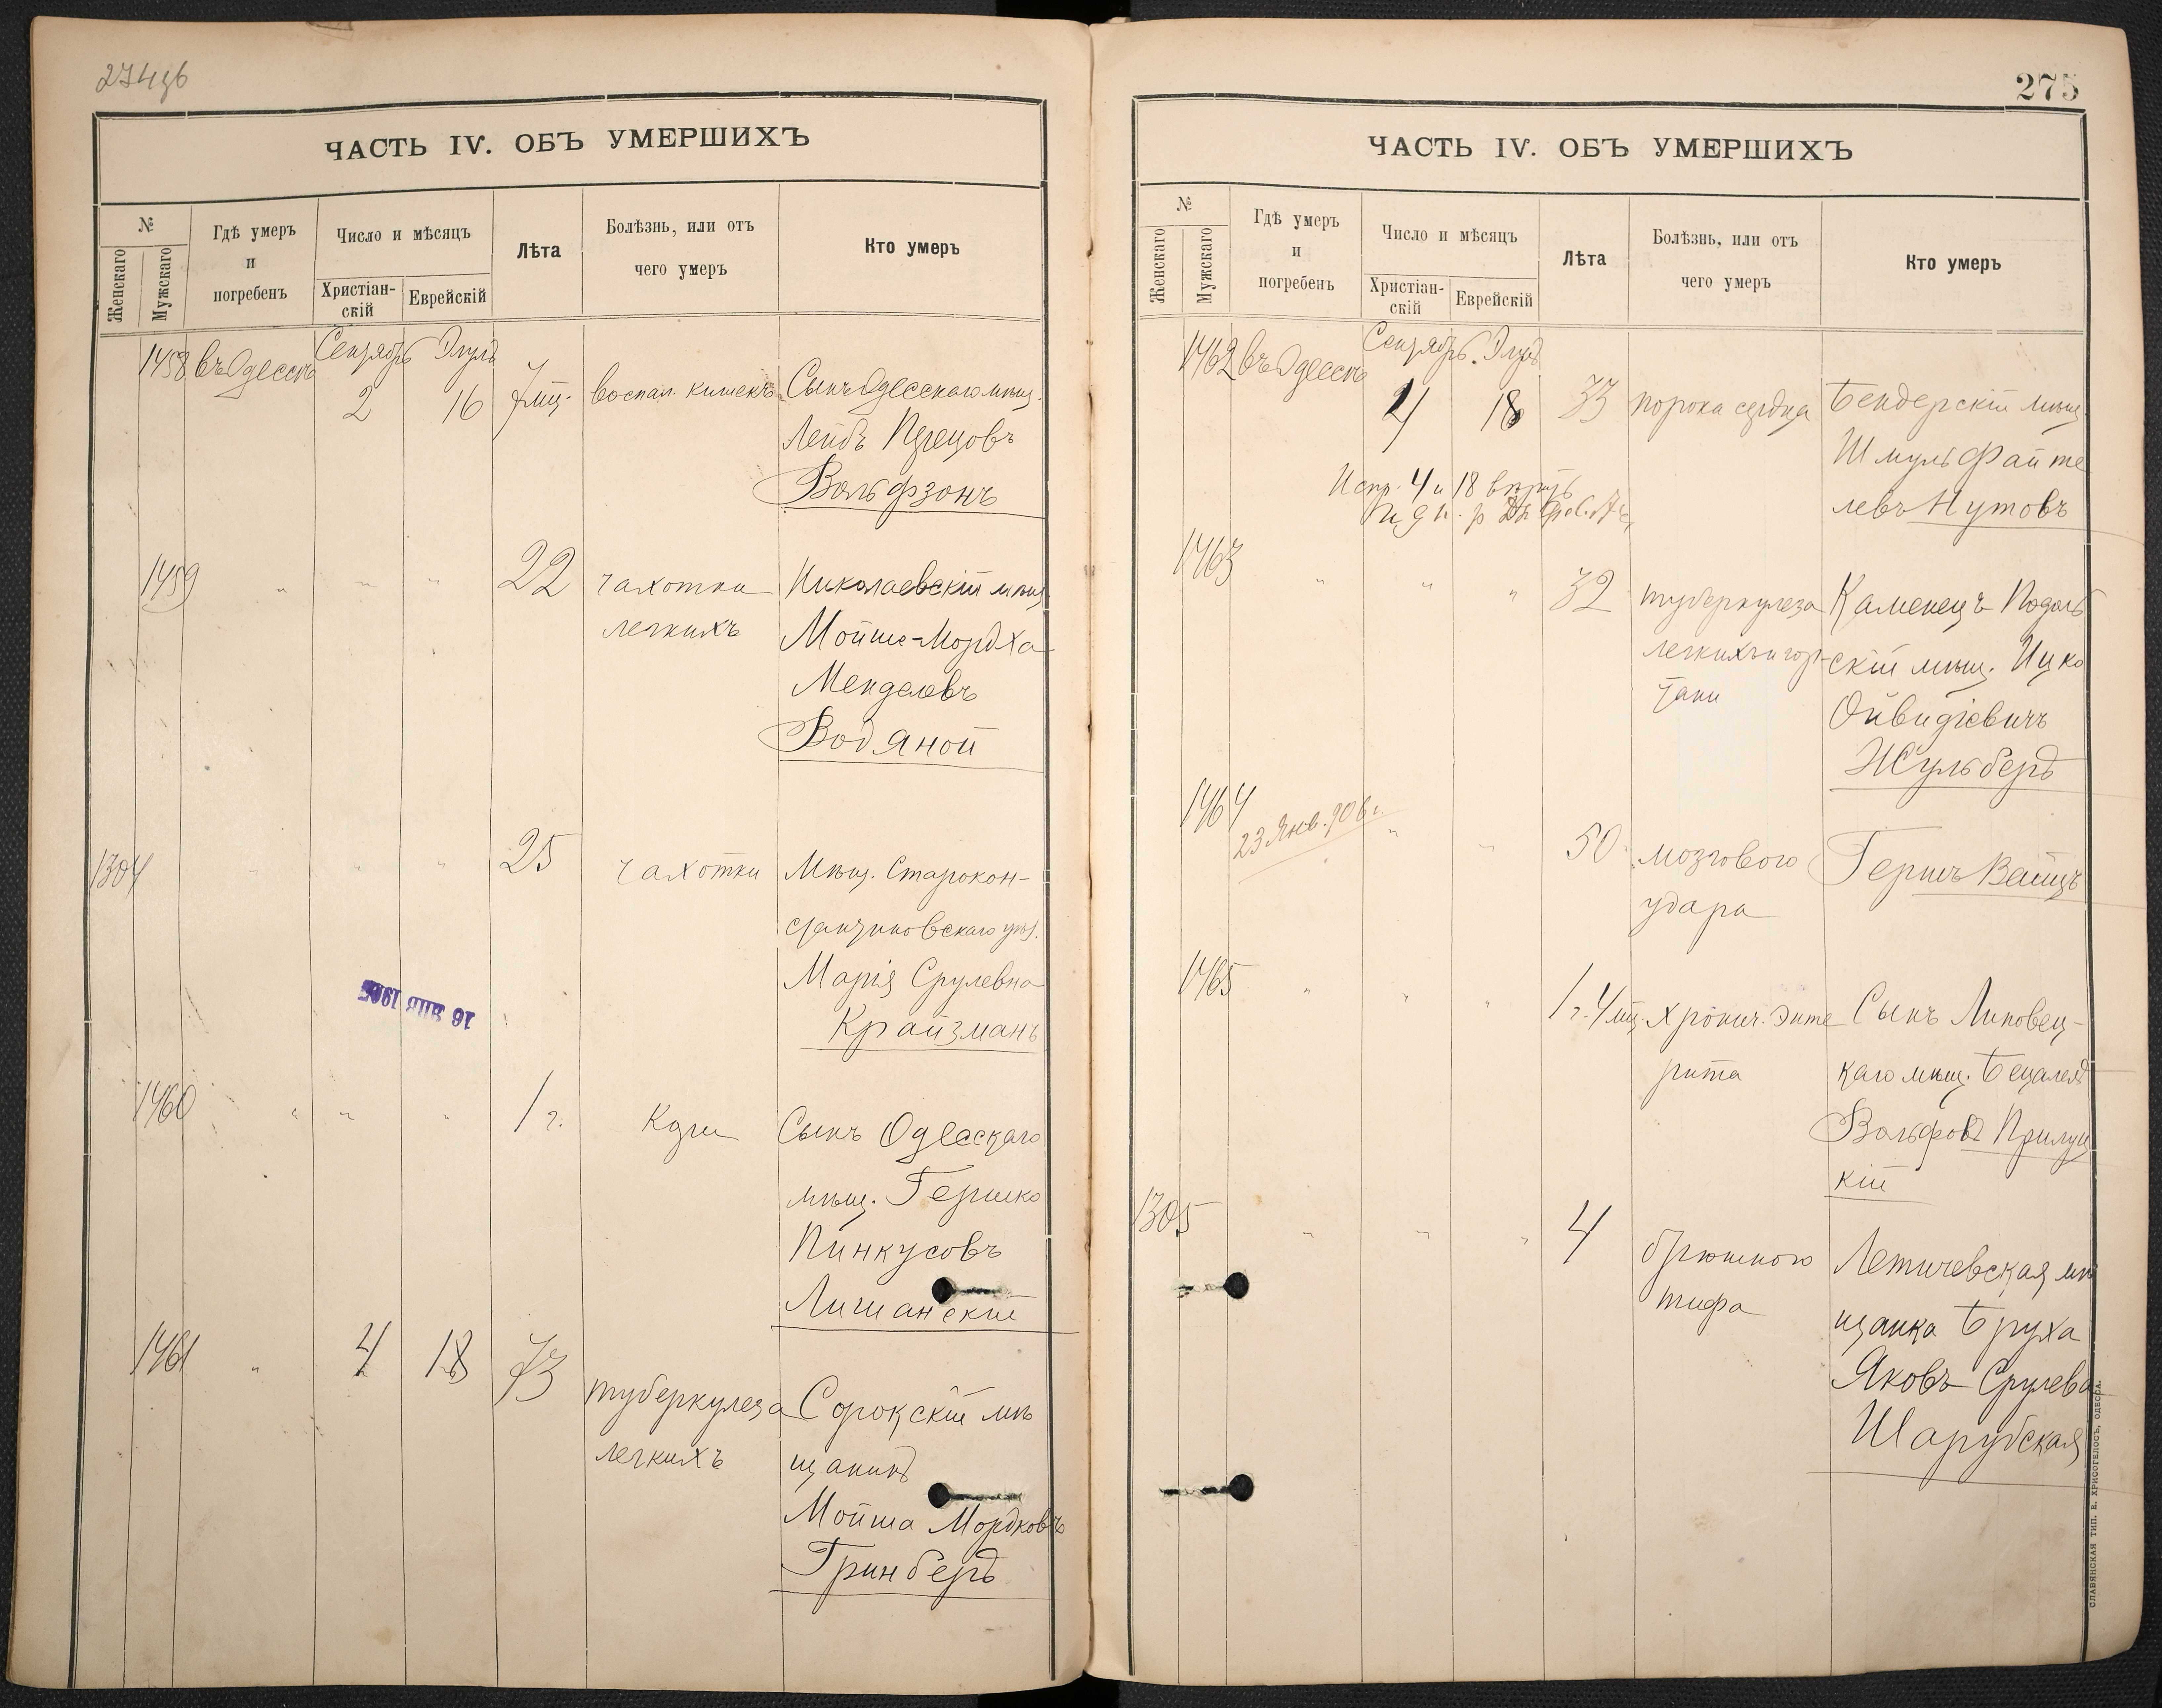 274об
ЧАСТЬ IV. ОБЪ УМЕРШИХЪ
№
Женскаго
Мужскаго
Гдѣ умеръ
и
погребенъ
Число и мѣсяцъ
Христіан-
скій
Еврейскій
Лѣта
Болѣзнь, или отъ
чего умеръ
Кто умеръ
1458 въ Одессѣ Сентябрь Элулъ
2 16 7 мѣц. воспал. кишекъ Сынъ Одесскаго мѣщ.
Лейбъ
Вольфзонъ
1459 " " " 22 чахотки Николаевскій мѣщ.
легкихъ Мойше-Мордха
Менделевъ
Водяной
1304 " " " 25 чахотки Мѣщ. Старокон-
стантиновскаго уѣз.
Марія Срулевна
Крайзманъ
16 ЯНВ 1905
1460 " " " 1 г. Кори Сынъ Одесскаго
мѣщ. Гершко
Пинкусовъ
Лишанскій
1461 " 4 18 73 туберкулеза Сорокскій мѣ
легкихъ щанинъ
Мойша Мордковъ
Гринбергъ
275
ЧАСТЬ IV. ОБЪ УМЕРШИХЪ
№
Женскаго
Мужскаго
Гдѣ умеръ
и
погребенъ
Число и мѣсяцъ
Христіан-
скій
Еврейскій
Лѣта
Болѣзнь, или отъ
чего умеръ
Кто умеръ
1462 въ Одессѣ Сентябрь Элулъ
4 18 33 порока сердца Бендерскій мѣщ.
Шмуль Файте
левъ Нутовъ
Испр. 4 и 18 вѣрить
1463 " " " 32 туберкулеза Каменецъ Подоль
легкихъ и гор- скій мѣщ. Ицко
тани Ойвидіевичъ
Жульбергъ
1464 " " 50 мозгового Гершъ Вайцъ
23 Янв. 906 г.
удара
1465 " " " 1 г. 4 мц. хронич. энте Сынъ Липовец-
рита каго мѣщ. Бецалель
Вольфовъ Прилуц
кій
1305 " " " 4 брюшного Летичевская мѣ
тифа щанка Бруха
Яковъ Срулева
Шарубская
СЛАВЯНСКАЯ ТИП. Е. ХРИСОГЕЛОСЪ, ОДЕССА.